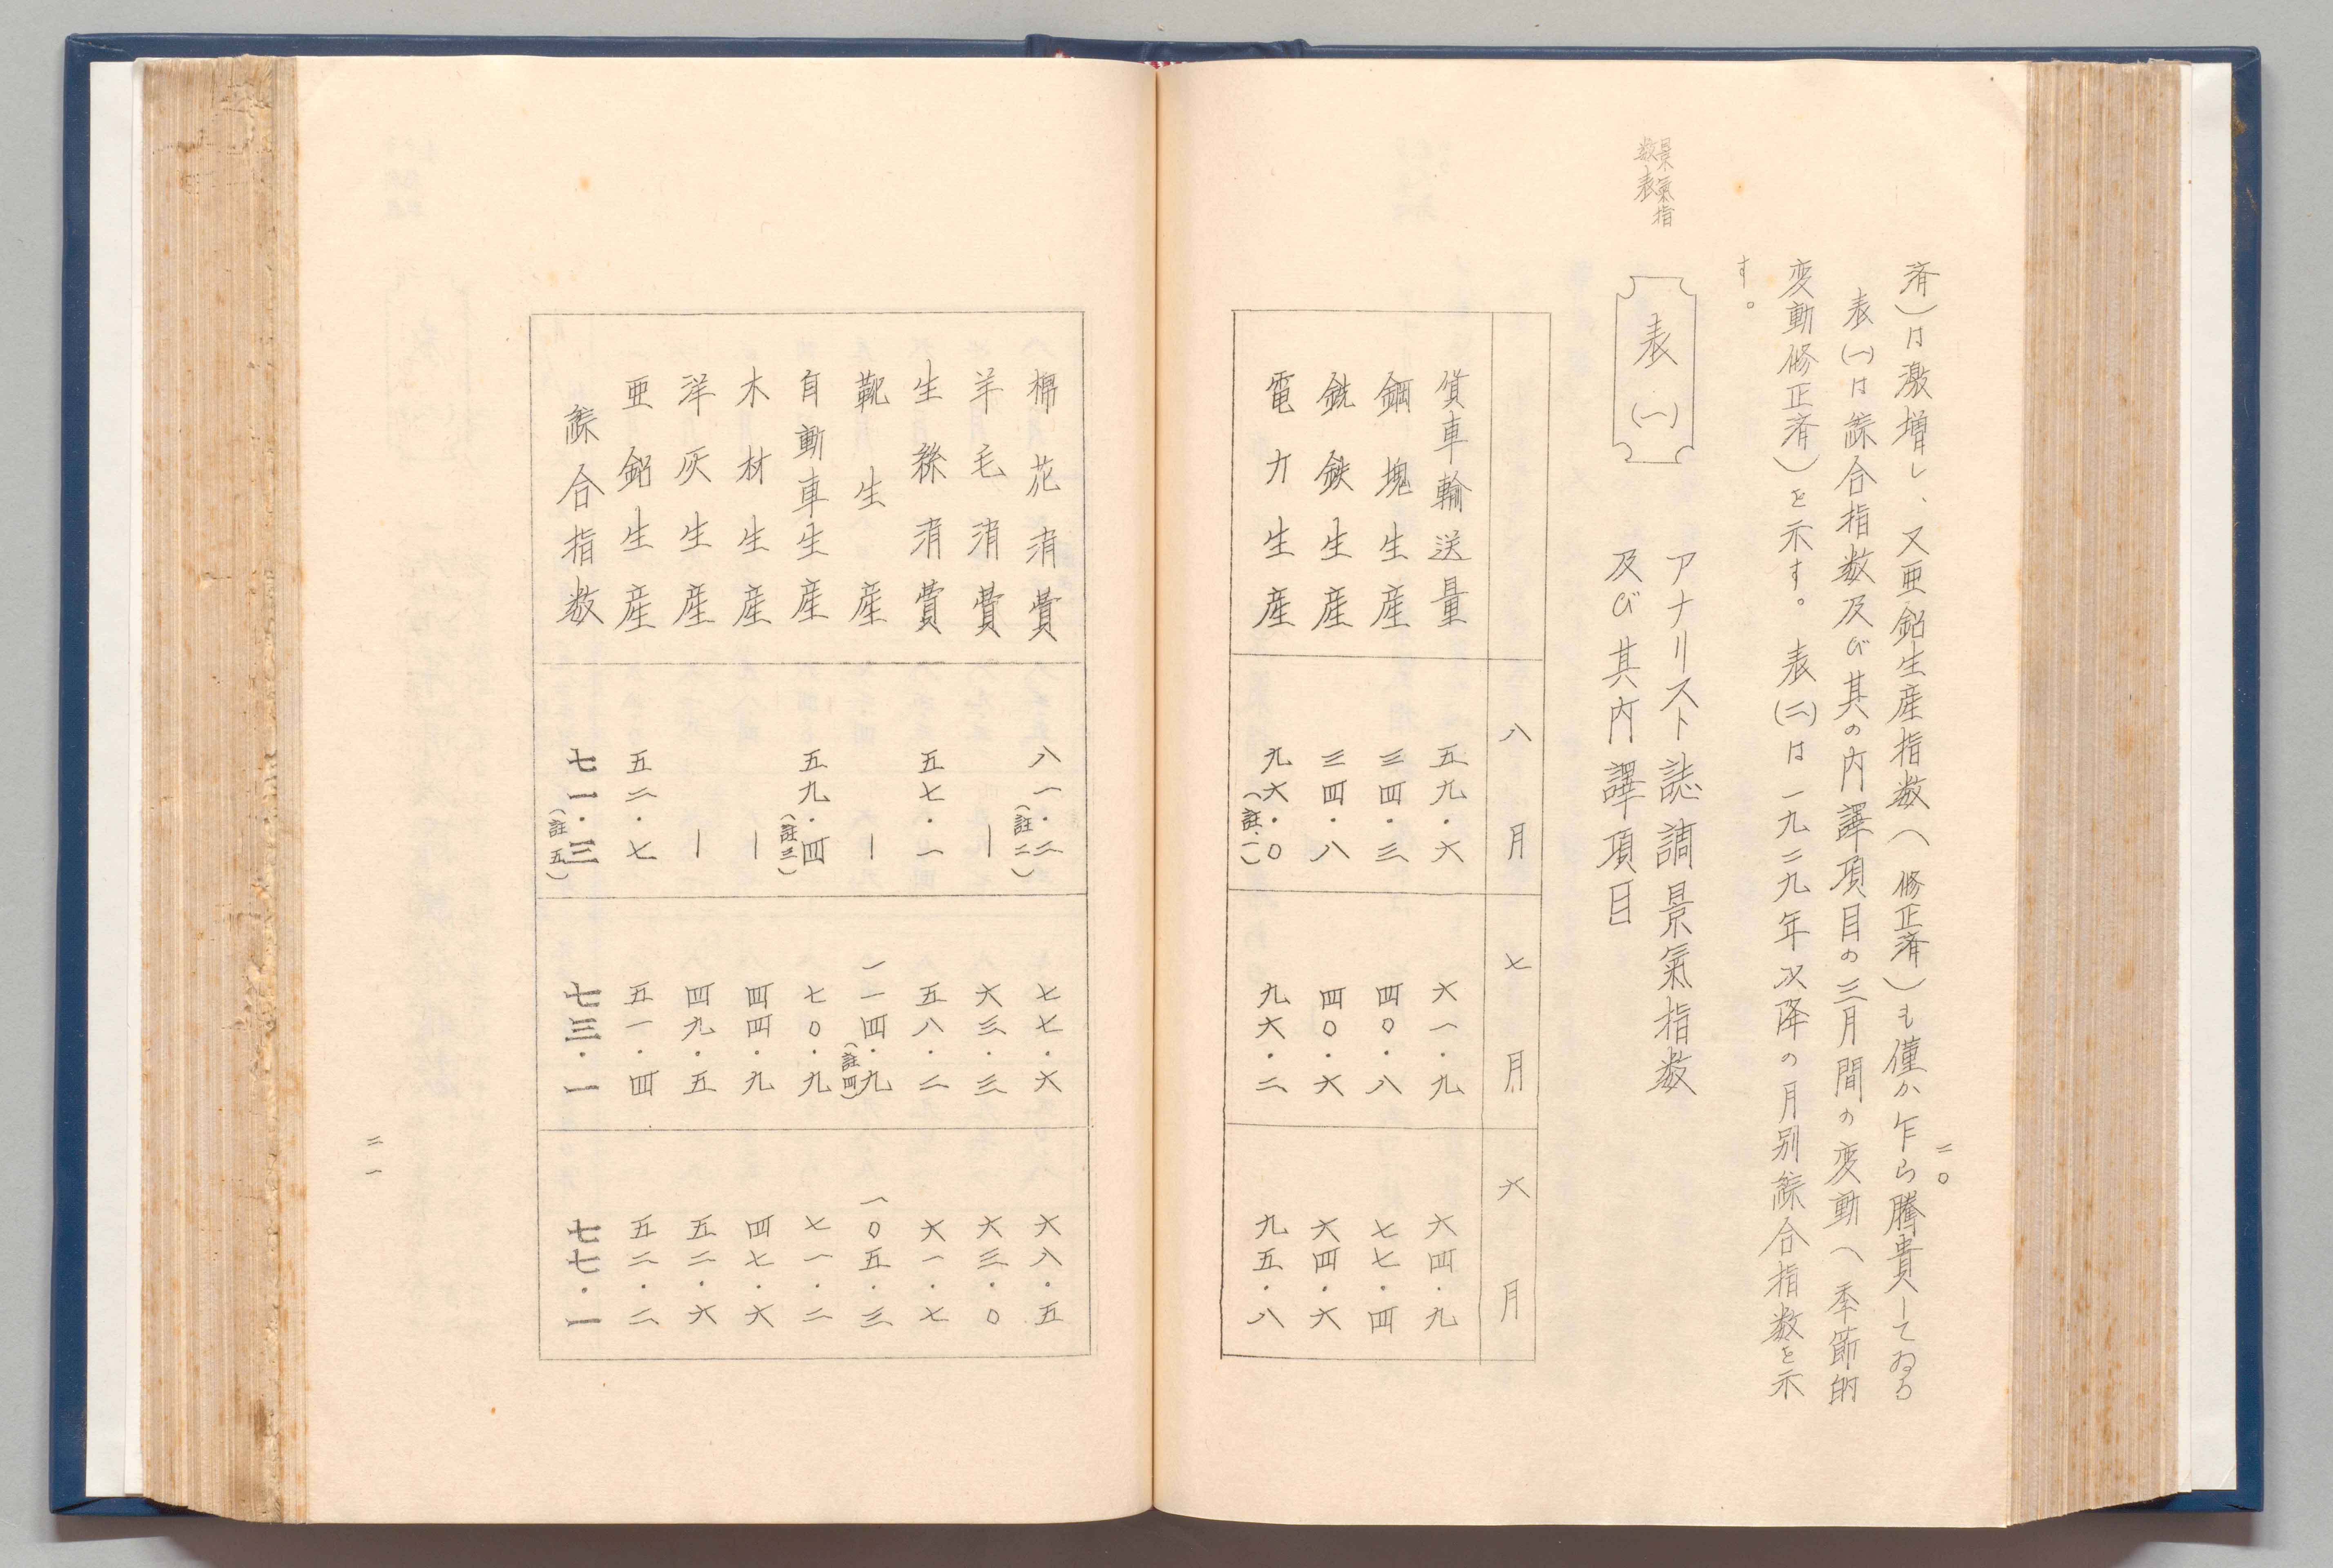 二〇
済）は激増し、又亜鉛生産指数（修正済）も僅か乍ら騰貴してゐる
表(一)は綜合指数及び其の内譯項目の三月間の変動（季節的
変動修正済）を示す。表(二)は一九二九年以降の月別綜合指数を示
す。
景氣指
数表
表(一)
アナリスト誌調景氣指数
及び其内譯項目
八月 七月 六月
貨車輸送量 五九・六 六一・九 六四・九
鋼塊生産 三四・三 四〇・八 七七・四
銑鉄生産 三四・八 四〇・六 六四・六
電力生産 九六・〇（註一） 九六・二 九五・八
棉花消費 八一・二（註二） 七七・六 六八・五
羊毛消費 — 六三・三 六三・〇
生絲消費 五七・一 五八・二 六一・七
靴生産 — 一一四・九（註四） 一〇五・三
自動車生産 五九・四（註三） 七〇・九 七一・二
木材生産 — 四四・九 四七・六
洋灰生産 — 四九・五 五二・六
亜鉛生産 五二・七 五一・四 五二・二
綜合指数 七一・三（註五） 七三・一 七七・一
二一